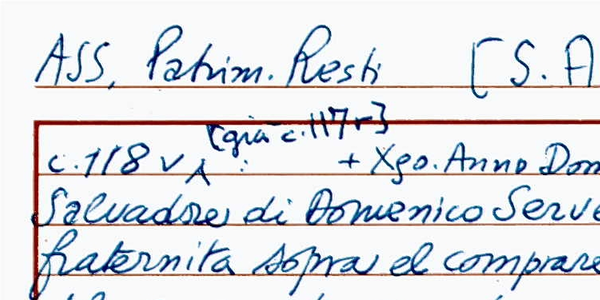 ASS, Patrim. Resti [S. A
[già c. 117r]
c. 118 v + Xgo. Anno Dom
Salvadore di Domenico Serve
fraternita sopra el comprare